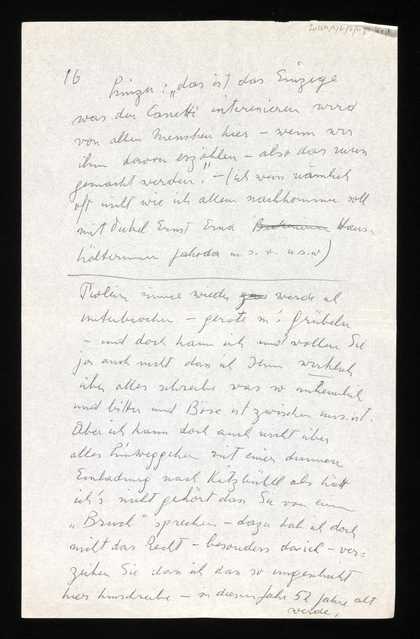 16
hinzu: „das ist das Einzige
was den Canetti interessieren wird
von allen Menschen hier – wenn wir
ihm davon erzählen – also das muss
gemacht werden." – (ich weiss nämlich
oft nicht wie ich allem nachkommen soll
mit Onkel Ernst Erna Haus-
hälterinnen Jahoda u. s. w. u.s.w)
immer wieder werde ich
unterbrochen – gerate in's Grübeln
– und doch kann ich und wollen Sie
ja auch nicht dass ich Ihnen wirklich
über alles schreibe was so unheimlich
und bitter und Böse ist zwischen uns ist.
Aber ich kann doch auch nicht über
alles hinweggehen mit einer dummen
Einladung nach Kitzbühel als hätt
ich's nicht gehört dass Sie von einem
„Bruch" sprechen – dazu hab ich doch
nicht das Recht – besonders da ich – ver=
zeihen Sie dass ich das so ungeschickt
hier hinschreibe – in diesem Jahr 52 Jahre alt
werde,